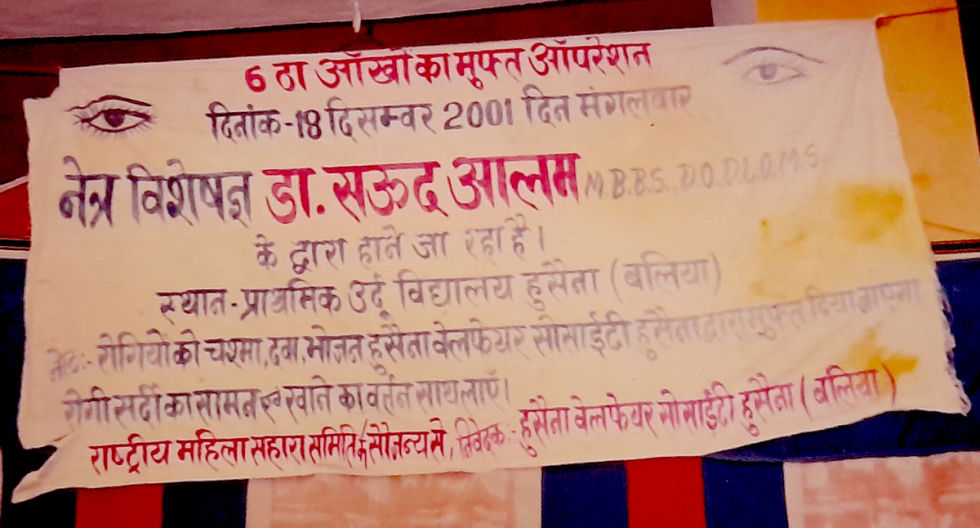 6 ठा आँखों का मुफ्त ऑपरेशन
दिनांक-18 दिसम्वर 2001 दिन मंगलवार
नेत्र विशेषज्ञ डा. सऊद आलम M.B.B.S. D.O.D.L.O.M.S.
के द्वारा हाने जा रहा है।
स्थान-प्राथमिक उर्दू विद्यालय हुसैना (बलिया)
नोट:- रोगियों को चश्मा, दवा, भोजन हुसैना वेलफेयर सोसाईटी हुसैना द्वारा मुफ्त दिया जाएगा
रोगी सर्दी का सामन एवं खाने का वर्तन साथ लाएँ।
राष्ट्रीय महिला सहारा समिति के सौजन्य से, निवेदक:- हुसैना वेलफेयर सोसाईटी हुसैना (बलिया)